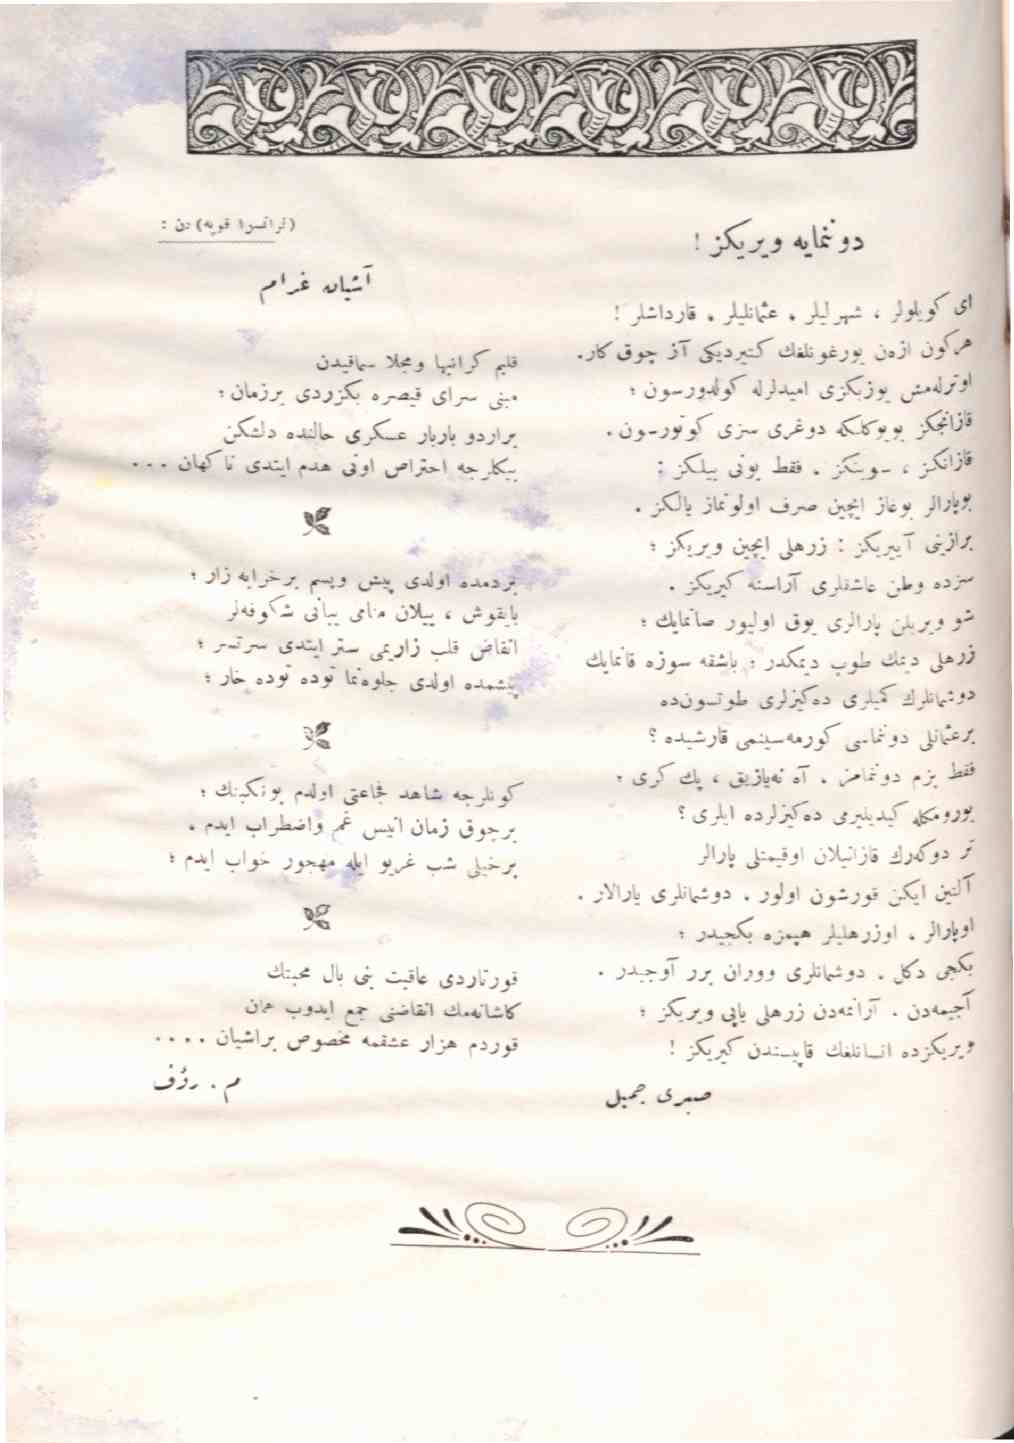 دوننمايه ويريكز !
ای كويلولر ، شهرليلر . عثمانليلر . قارداشلر !
هركون ازەن يورغونلغك كتيرديكی آز چوق كار.
اوترلەمش يوزيكزی اميدلرله كولدورسون ؛
قازانجكز بويوكلكه دوغری سزی كوتورسون.
قازانكز ، سوينكز . فقط بونی بيلكز :
بوپارالر بوغاز ايچين صرف اولونماز يالكز .
برازينی آييريكز : زرهلی ايچين ويريكز ؛
سزده وطن عاشقلری آراسنه كيريكز .
شو ويريلن پارالری يوق اوليور صانمايك ؛
زرهلی ديمك طوپ ديمكدر ؛ باشقه سوزه قانمايك
دوشمانلرك كميلری دەكيزلری طوتسون‌ده
برعثمانلی دونماسی كورمەسينمی قارشيده ؟
فقط بزم دونمامز . آه نەيازيق ، پك كری ؛
يورومكله كيديليرمی دەكيزلرده ايلری ؟
تر دوكەرك قازانيلان اوقيمتلی پارالر
آلتين ايكن قورشون اولور . دوشمانلری يارالار .
اوپارالر . اوزرهليلر هپمزه بكجيدر ؛
بكجی دكل . دوشمانلری ووران برر آوجيدر .
آجيمەدن . آرانمەدن زرهلی ياپی ويريكز ؛
ويريكزده انسانلغك قاپيسندن كيريكز !
صبری جميل
(فرانسوا قوپه) دن :
آشيان غرام
قلبم كرانبها ومجلا سماقيدن
مبنی سرای قيصره بكزردی برزمان ؛
براردو باربار عسكری حالنده دلشكن
بيكلرجه احتراص اونی هدم ايتدی ناكهان ...
بردمده اولدی پيش وپسم برخرابه زار ؛
بايقوش ، ييلان منامی يبانی شكوفەلر
انقاض قلب زاريمی ستر ايتدی سرتسر ؛
پيشمده اولدی جلوەنما توده توده خار ؛
كونلرجه شاهد فجاعتی اولدم يونكينك ؛
برچوق زمان انيس غم واضطراب ايدم .
برخيلی شب غريو ايله مهجور خواب ايدم ؛
قورتاردی عاقبت بنی بال محبتك
كاشانەمك انقاضنی جمع ايدوب همان
قوردم هزار عشقمه مخصوص برآشيان ....
م . رؤف